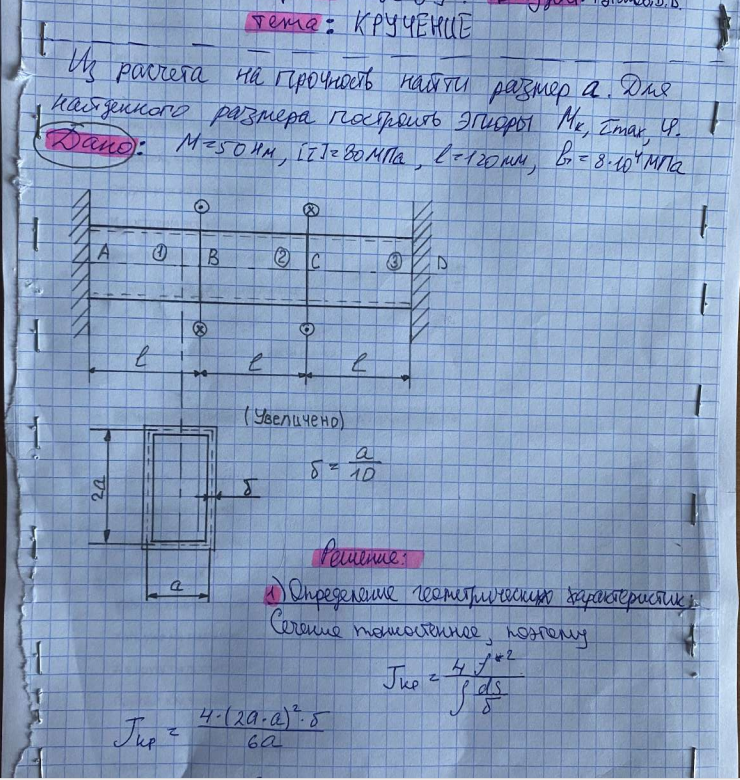 тема: КРУЧЕНИЕ
Из расчета на прочность найти размер a. Для
найденного размера построить эпюры Mк, τmax, φ.
Дано: M=50 Нм, [τ]=80 МПа, l=120 мм, G=8·10⁴ МПа
A ① B ② C ③ D
l l l
(Увеличено)
2a δ δ = a/10
a
Решение:
1) Определение геометрических характеристик:
Сечение тонкостенное, поэтому
Jкр = 4 f*² / ∫ ds/δ
Jкр = 4·(2a·a)²·δ / 6a